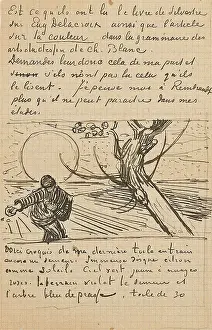 Est ce qu'ils ont lu le livre de Silvestre
sur Eug Delacroix ainsi que l'article
sur la couleur dans la grammaire des
arts du dessin de Ch. Blanc.
Demandez leur donc cela de ma part et
sinon s'ils n'ont pas lu cela qu'ils
le lisent. J'pense moi à Rembrandt
plus qu'il ne peut paraitre dans mes
études.
Voici croquis de ma dernière toile en train
encore un semeur. Immense disque citron
comme soleil. Ciel vert jaune à nuages
roses. le terrain violet le semeur et
l'arbre bleu de prusse. toile de 30